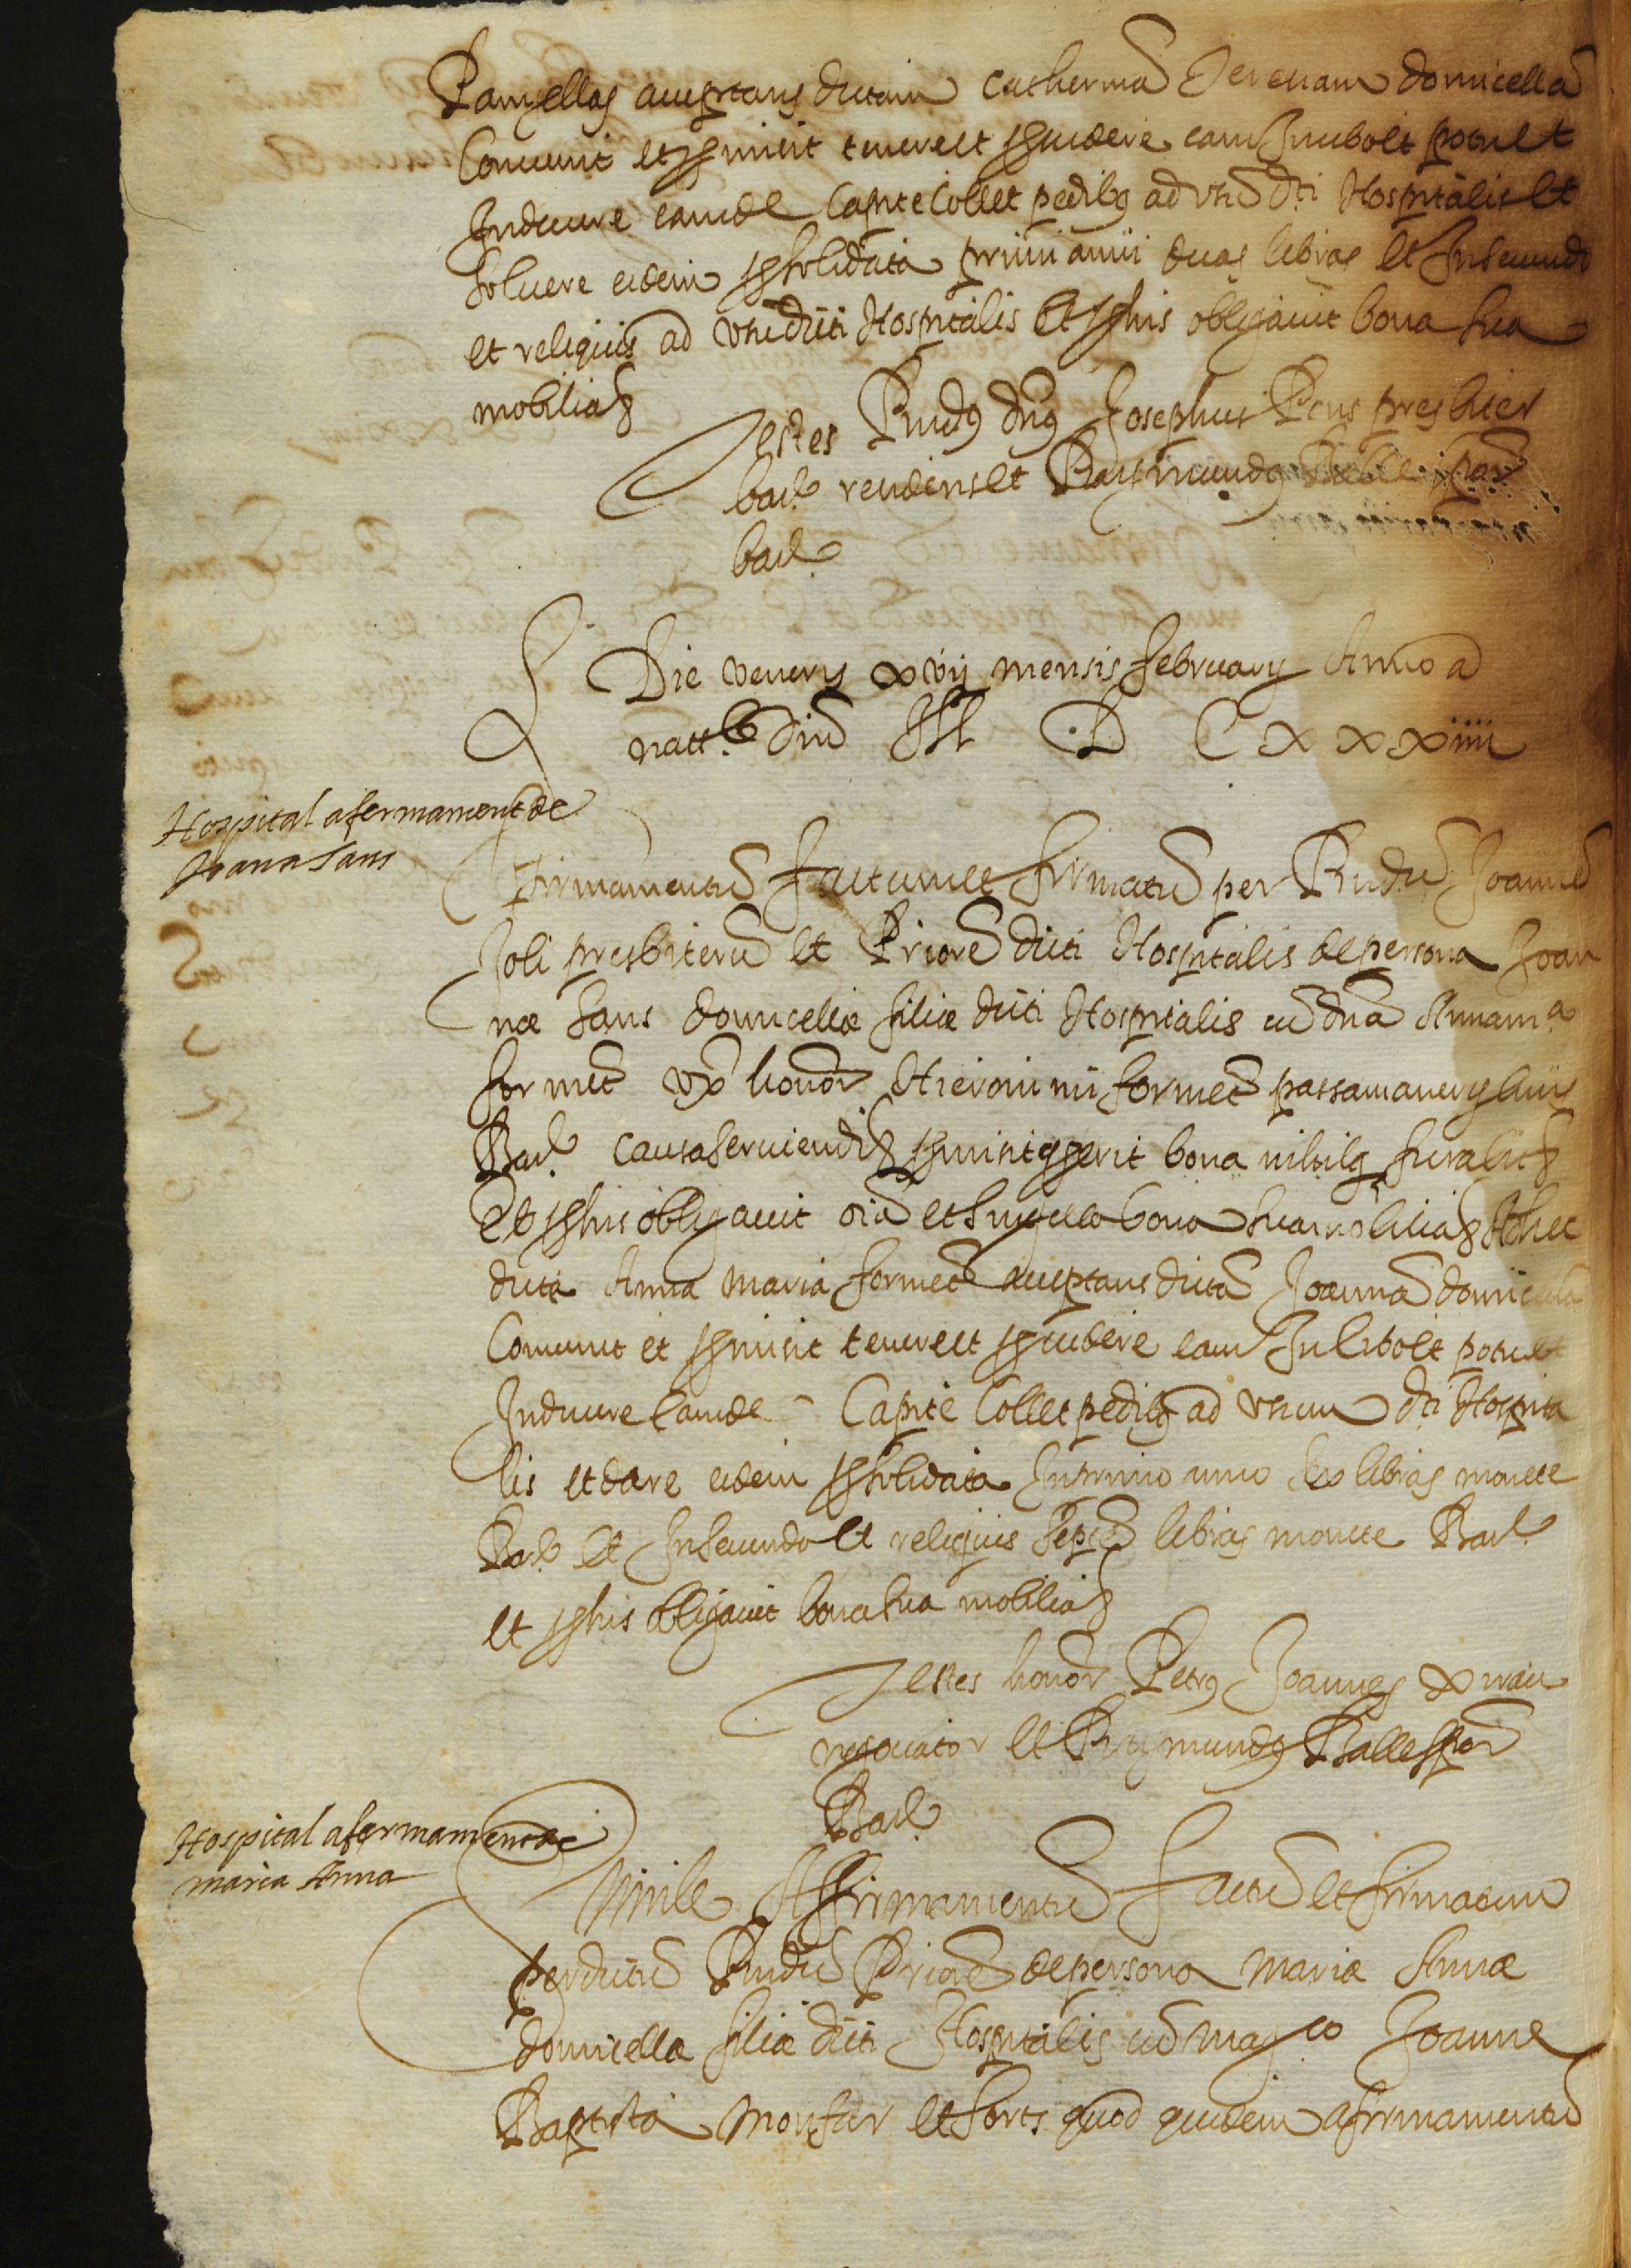 Pamyellas acceptans dictam Catherina Serenam domicella
Convenit et promisit tenere et providere eam In cibo et potu et
Inducere eamde Capite Collet pedibs ad usu dti Hospitalis et
solvere eidem pro solidata primi anni duas libras et In secundo
et reliquis ad usu dicti Hospitalis et pro his obligavit bona sua
mobilia &
Testes Rnds dns Josephus Pous presbiter
bar residens et Raymundus
bar
Die veneris xvij mensis february Anno a
natte Dni M D C x x x iiii
Hospital afermament de
Joana Sans
Firmamentu factum et firmatu per Rndu Joanne
Joli presbiteru et Priore dicti Hospitalis de persona Joan
næ Sans domicellæ filiæ dicti Hospitalis cu dna Annam a
formet ux honor Hieronimi formet passamanery civis
Bar causa serviendi & promisit q erit bona nihilq furabit &
Et pro his obligavit oia et singula bona sua mobilia & Ad hec
dicta Anna Maria formet acceptans dicta Joanna domicella
Convenit et promisit tenere et providere eam In cibo et potu et
Inducere eamde Capite Collet pedibs ad usum dti Hospita
lis et dare eidem pro solidata In primo anno sex libras monete
Bar et In secundo et reliquis septe libras monete Bar
et pro his obligavit bona sua mobilia &
Testes honor Petrus Joannes
negociator et Raymundus Balle
Bar
Hospital afermament de
maria Anna
Simile Affirmamentu factu et firmatum
per dictu Rndu Priore de persona Mariæ Annæ
domicella filiæ dicti Hospitalis cu mag co Joanne
Baptista Monfar et Sorts quod quidem afirmamentu